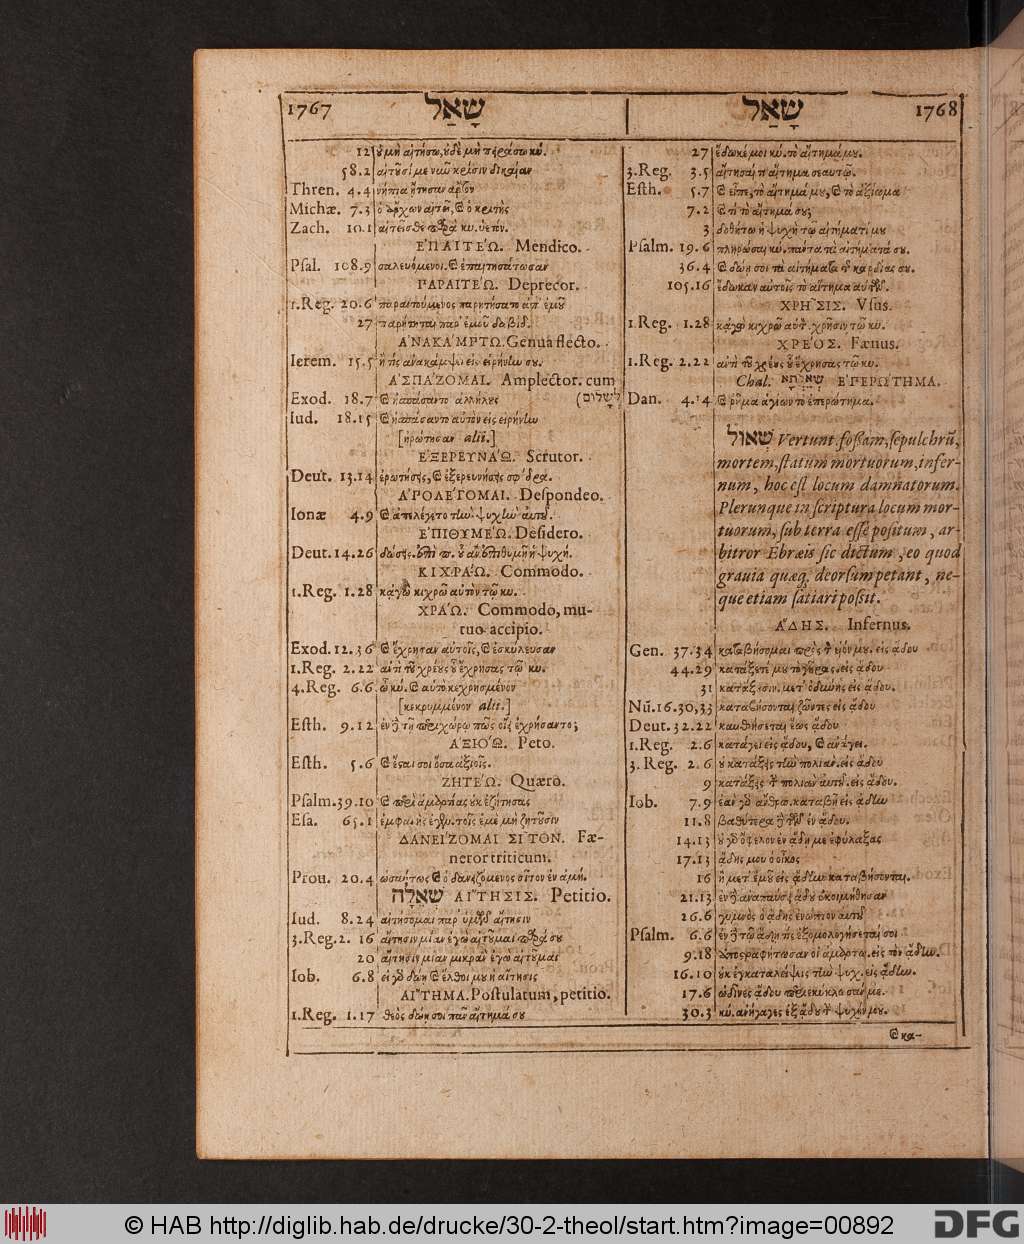 1767 שָׁאַל
12 ὐ μὴ αἰτήσω, ὐδὲ μὴ πειράσω κύ.
58.2 αἰτοῦσί με νῦν κρίσιν δικαίαν
Thren. 4.4 νήπια ἤτησαν ἄρτον
Michæ. 7.3 ὁ ἄρχων αἰτεῖ, καὶ ὁ κριτὴς
Zach. 10.1 αἰτεῖσθε παρὰ κυ. ὑετόν.
ΕΠΑΙΤΕΩ. Mendico.
Psal. 108.9 σαλευόμενοι. καὶ ἐπαιτησάτωσαν
ΠΑΡΑΙΤΕΩ. Deprecor.
1.Reg. 20.6 παραιτούμενος παρητήσατο ἀπ' ἐμοῦ
27 παρήτηται παρ' ἐμοῦ δαβίδ.
ΑΝΑΚΑΜΡΤΩ. Genua flecto.
Ierem. 15.5 ἢ τίς ἀνακάμψει εἰς εἰρήνην σου.
ΑΣΠΑΖΟΜΑΙ. Amplector. cum
Exod. 18.7 καὶ ἠσπάσαντο ἀλλήλους (לְשָׁלוֹם
Iud. 18.15 καὶ ἠσπάσαντο αὐτὸν εἰς εἰρήνην
[ἠρώτησαν alii.]
ΕΞΕΡΕΥΝΑΩ. Scrutor.
Deut. 13.14 ἐρωτήσεις, καὶ ἐξερευνήσεις σφόδρα.
ΑΡΟΛΕΓΟΜΑΙ. Despondeo.
Ionæ 4.9 καὶ ἀπελέγετο τὴν ψυχὴν αὐτοῦ.
ΕΠΙΘΥΜΕΩ. Desidero.
Deut. 14.26 δώσεις. ἐπὶ π. οὗ ἂν ἐπιθυμῇ ἡ ψυχή.
ΚΙΧΡΑΩ. Commodo.
1.Reg. 1.28 κἀγὼ κιχρῶ αὐτὸν τῷ κυ.
ΧΡΑΩ. Commodo, mu-
tuo accipio.
Exod. 12.36 καὶ ἔχρησαν αὐτοῖς, καὶ ἐσκύλευσαν
1.Reg. 2.22 ἀντὶ τοῦ χρέους οὗ ἔχρησας τῷ κυ.
4.Reg. 6.6 ὦ κύ. καὶ αὐτὸ κεχρησμένον
[κεκρυμμένον alii.]
Esth. 9.12 ἐν δὲ τῇ περιχώρῳ πῶς οἴει ἐχρήσαντο;
ΑΞΙΟΩ. Peto.
Esth. 5.6 καὶ ἔσται σοι ὅσα ἀξιοῖς.
ΖΗΤΕΩ. Quæro.
Psalm. 39.10 καὶ περὶ ἁμαρτίας οὐκ ἐζήτησας
Esa. 65.1 ἐμφανὴς ἐγεν. τοῖς ἐμὲ μὴ ζητοῦσιν
ΔΑΝΕΙΖΟΜΑΙ ΣΙΤΟΝ. Fæ-
neror triticum.
Prou. 20.4 ὡσαύτως καὶ ὁ δανειζόμενος σῖτον ἐν ἀμή.
שְׁאֵלָה ΑΙΤΗΣΙΣ. Petitio.
Iud. 8.24 αἰτήσομαι παρ' ὑμῶν αἴτησιν
3.Reg. 2.16 αἴτησιν μίαν ἐγὼ αἰτοῦμαι παρὰ σοῦ
20 αἴτησιν μίαν μικρὰν ἐγὼ αἰτοῦμαι
Iob. 6.8 εἰ γὰρ δῴη καὶ ἔλθοι μου ἡ αἴτησις
ΑΙΤΗΜΑ. Postulatum, petitio.
1.Reg. 1.17 θεὸς δῴη σοι πᾶν αἴτημά σου
שָׁאַל 1768
27 ἔδωκέ μοι κύ. τὸ αἴτημά μου.
3.Reg. 3.5 αἴτησαί τι αἴτημα σεαυτῷ.
Esth. 5.7 καὶ εἶπε, τὸ αἴτημά μου, καὶ τὸ ἀξίωμα
7.2 καὶ τί τὸ αἴτημά σου;
3 δοθήτω ἡ ψυχὴ τῷ αἰτήματί μου
Psalm. 19.6 πληρώσαι κύ. πάντα τὰ αἰτήματά σου.
36.4 καὶ δῴη σοι τὰ αἰτήματα τῆς καρδίας σου.
105.16 ἔδωκεν αὐτοῖς τὸ αἴτημα αὐτῶν.
ΧΡΗΣΙΣ. Vsus.
1.Reg. 1.28 κἀγὼ κιχρῶ αὐτ. χρῆσιν τῷ κυ.
ΧΡΕΟΣ. Fænus.
1.Reg. 2.22 ἀντὶ τοῦ χρέους οὗ ἔχρησας τῷ κυ.
Chal. שְׁאֵלְתָא ΕΠΕΡΩΤΗΜΑ.
Dan. 4.14 καὶ ῥῆμα ἁγίων τὸ ἐπερώτημα.
שְׁאוֹל Vertunt, fossam, sepulchrū,
mortem, statum mortuorum, infer-
num, hoc est locum damnatorum.
Plerunque in scriptura locum mor-
tuorum, sub terra esse positum, ar-
bitror Ebræis sic dictum, eo quod
grauia quæq; deorsum petant, ne-
que etiam satiari possit.
ΑΔΗΣ. Infernus.
Gen. 37.34 καταβήσομαι πρὸς τὸν υἱόν μου. εἰς ᾅδου
44.29 κατάξετέ μου τὸ γῆρας. εἰς ᾅδου
31 κατάξουσιν. μετ' ὀδύνης εἰς ᾅδου.
Nū. 16.30,33 καταβήσονται ζῶντες εἰς ᾅδου
Deut. 32.22 καυθήσεται ἕως ᾅδου
1.Reg. 2.6 κατάγει εἰς ᾅδου, καὶ ἀνάγει.
3.Reg. 2.6 οὐ κατάξεις τὴν πολιὰν. εἰς ᾅδου
9 κατάξεις τὴν πολιὰν αὐτοῦ. εἰς ᾅδου.
Iob. 7.9 ἐὰν γὰρ ἄνθρω. καταβῇ εἰς ᾅδην
11.8 βαθύτερα δὲ τῶν ἐν ᾅδου.
14.13 εἰ γὰρ ὄφελον ἐν ᾅδῃ με ἐφύλαξας
17.13 ᾅδης μου ὁ οἶκος
16 ἢ μετ' ἐμοῦ εἰς ᾅδην καταβήσονται.
21.13 ἐν δὲ ἀναπαύσει ᾅδου ἐκοιμήθησαν
26.6 γυμνὸς ὁ ᾅδης ἐνώπιον αὐτοῦ
Psalm. 6.6 ἐν δὲ τῷ ᾅδῃ τίς ἐξομολογήσεταί σοι
9.18 ἀποστραφήτωσαν οἱ ἁμαρτω. εἰς τὸν ᾅδην.
16.10 οὐκ ἐγκαταλείψεις τὴν ψυχ. εἰς ᾅδην.
17.6 ὠδῖνες ᾅδου περιεκύκλωσάν με.
30.3 κύ. ἀνήγαγες ἐξ ᾅδου τὴν ψυχήν μου.
καὶ κα-
© HAB http://diglib.hab.de/drucke/30-2-theol/start.htm?image=00892
DFG